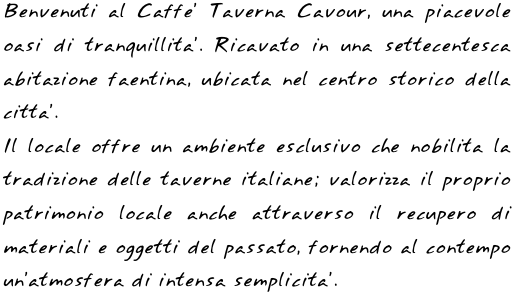 Benvenuti al Caffe' Taverna Cavour, una piacevole
oasi di tranquillita'. Ricavato in una settecentesca
abitazione faentina, ubicata nel centro storico della
citta'.
Il locale offre un ambiente esclusivo che nobilita la
tradizione delle taverne italiane; valorizza il proprio
patrimonio locale anche attraverso il recupero di
materiali e oggetti del passato, fornendo al contempo
un'atmosfera di intensa semplicita'.